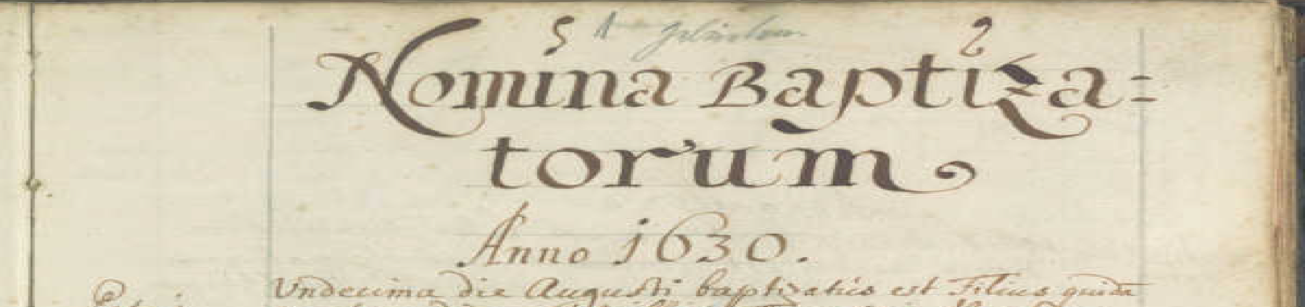 Nomina Baptiza=
torum
Anno 1630.
Undecima die Augusti baptizatus est Filius quidā